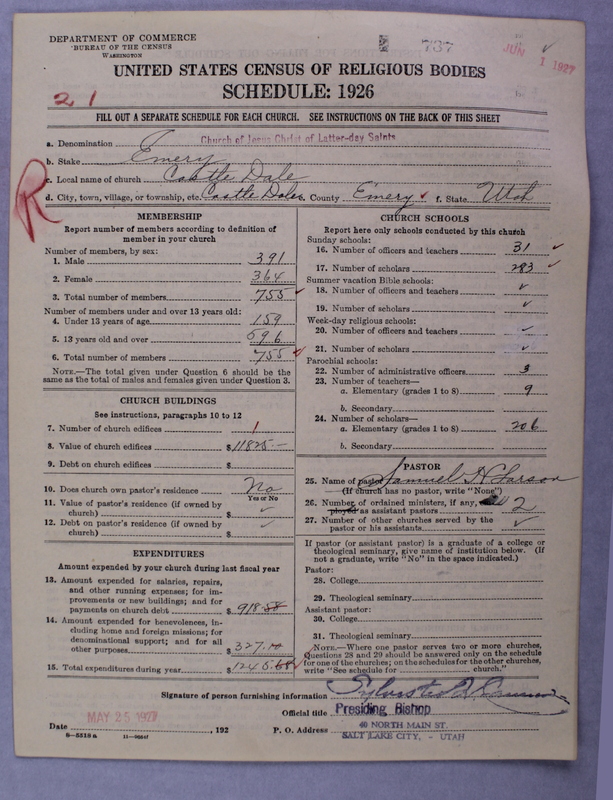 DEPARTMENT OF COMMERCE
BUREAU OF THE CENSUS
WASHINGTON
737
JUN 1 1927
UNITED STATES CENSUS OF RELIGIOUS BODIES
SCHEDULE: 1926
2 1
FILL OUT A SEPARATE SCHEDULE FOR EACH CHURCH. SEE INSTRUCTIONS ON THE BACK OF THIS SHEET
a. Denomination Church of Jesus Christ of Latter-day Saints
b. Stake Emery
c. Local name of church Castle Dale
R
d. City, town, village, or township, etc. Castle Dale County Emery f. State Utah
MEMBERSHIP
Report number of members according to definition of
member in your church
Number of members, by sex:
1. Male 391
2. Female 364
3. Total number of members 755
Number of members under and over 13 years old:
4. Under 13 years of age 159
5. 13 years old and over 596
6. Total number of members 755
NOTE.—The total given under Question 6 should be the
same as the total of males and females given under Question 3.
CHURCH BUILDINGS
See instructions, paragraphs 10 to 12
7. Number of church edifices 1
8. Value of church edifices $ 11825.—
9. Debt on church edifices $
10. Does church own pastor's residence No
Yes or No
11. Value of pastor's residence (if owned by
church) $ ✓
12. Debt on pastor's residence (if owned by
church) $ ✓
EXPENDITURES
Amount expended by your church during last fiscal year
13. Amount expended for salaries, repairs,
and other running expenses; for im-
provements or new buildings; and for
payments on church debt $ 918.58
14. Amount expended for benevolences, in-
cluding home and foreign missions; for
denominational support; and for all
other purposes $ 327.10
15. Total expenditures during year $ 1245.68
CHURCH SCHOOLS
Report here only schools conducted by this church
Sunday schools:
16. Number of officers and teachers 31 ✓
17. Number of scholars 283 ✓
Summer vacation Bible schools:
18. Number of officers and teachers ✓
19. Number of scholars ✓
Week-day religious schools:
20. Number of officers and teachers ✓
21. Number of scholars ✓
Parochial schools:
22. Number of administrative officers 3
23. Number of teachers—
a. Elementary (grades 1 to 8) 9
b. Secondary
24. Number of scholars—
a. Elementary (grades 1 to 8) 206
b. Secondary
PASTOR
25. Name of pastor Samuel H Larson
(If church has no pastor, write "None")
26. Number of ordained ministers, if any, 2
ployed as assistant pastors
27. Number of other churches served by the ✓
pastor or his assistants
If pastor (or assistant pastor) is a graduate of a college or
theological seminary, give name of institution below. (If
not a graduate, write "No" in the space indicated.)
Pastor:
28. College
29. Theological seminary
Assistant pastor:
30. College
31. Theological seminary
NOTE.—Where one pastor serves two or more churches,
Questions 28 and 29 should be answered only on the schedule
for one of the churches; on the schedules for the other churches,
write "See schedule for church."
Signature of person furnishing information
Official title Presiding Bishop
Date MAY 25 1927, 192 P. O. Address 40 NORTH MAIN ST.
SALT LAKE CITY, - UTAH